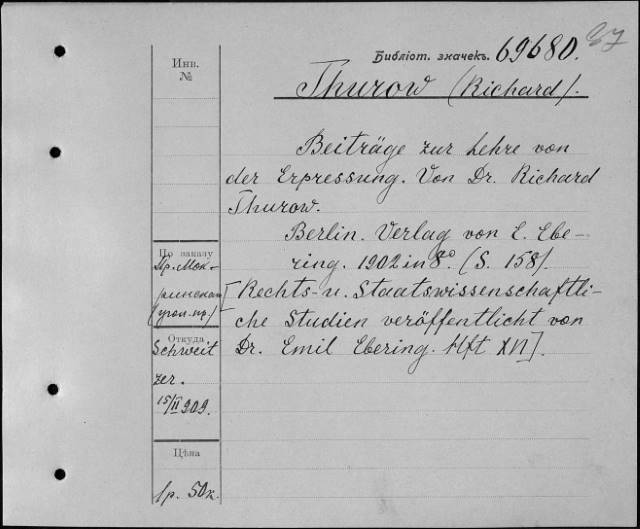 Библіот. значекъ. 69680. 37
Инв.
№
Thurow (Richard).
Beiträge zur Lehre von
der Erpressung. Von Dr. Richard
Thurow.
Berlin. Verlag von E. Ebe-
ring. 1902 in 8° (S. 158).
[Rechts- u. Staatswissenschaftli-
che Studien veröffentlicht von
Dr. Emil Ebering. Hft XVI].
По заказу
Пр. Мок-
ринскаго
(угол. пр.)
Откуда
Schweit
zer.
15/II 909.
Цѣна
1 р. 50 к.